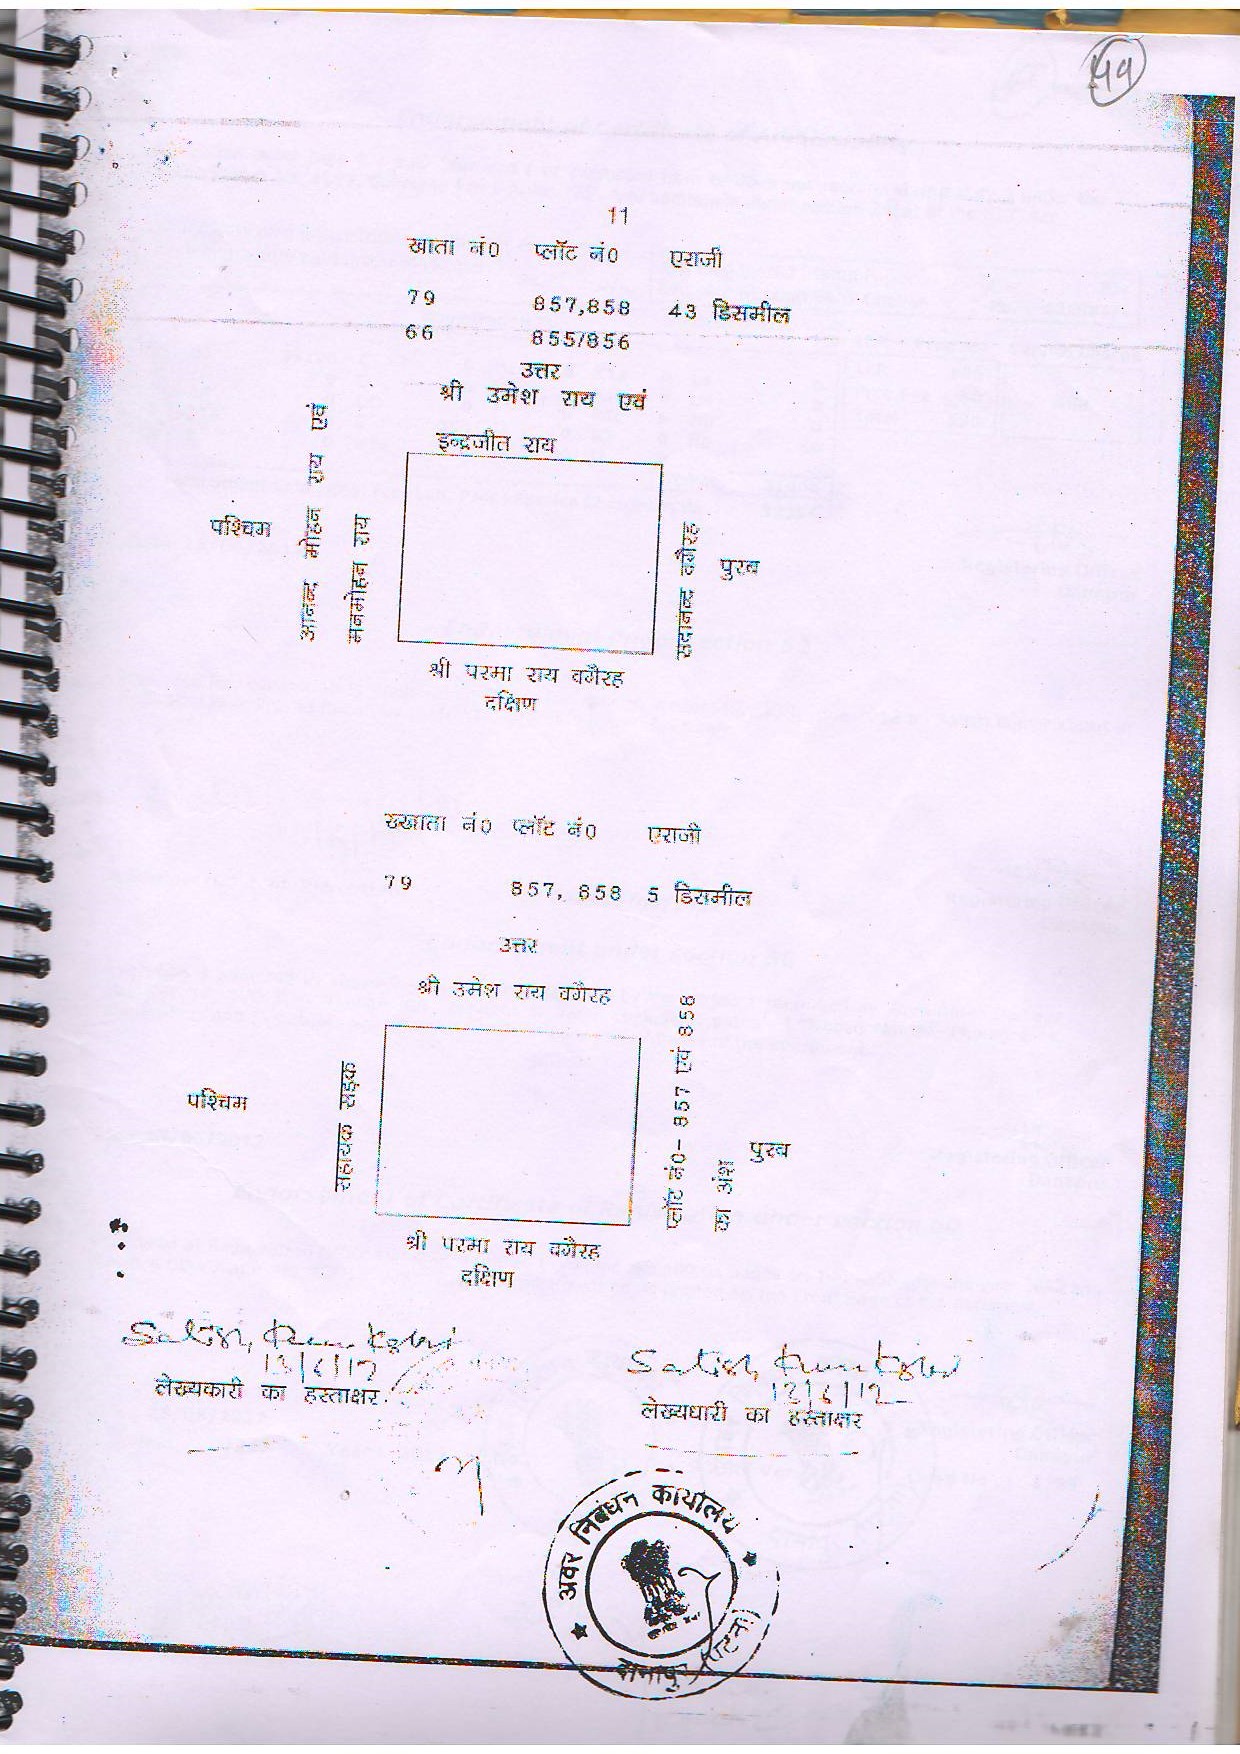 11
खाता नं0 प्लॉट नं0 एराजी
79 857,858 43 डिसमील
66 855/856
उत्तर
श्री उमेश राय एवं
इन्द्रजीत राय
पश्चिम
आनन्द मोहन राय एवं
मनमोहन राय
सदानन्द वगैरह
पुरब
श्री परमा राय वगैरह
दक्षिण
ख्खाता नं0 प्लॉट नं0 एराजी
79 857, 858 5 डिसमील
उत्तर
श्री उमेश राय वगैरह
पश्चिम
सहायक सड़क
प्लॉट नं0- 857 एवं 858
का अंश
पुरब
श्री परमा राय वगैरह
दक्षिण
Satish Kumar
13/6/12
लेख्यकारी का हस्ताक्षर
Satish Kumar
12/6/12
लेख्यधारी का हस्ताक्षर
अवर निबंधन कार्यालय
दानापुर (पटना)